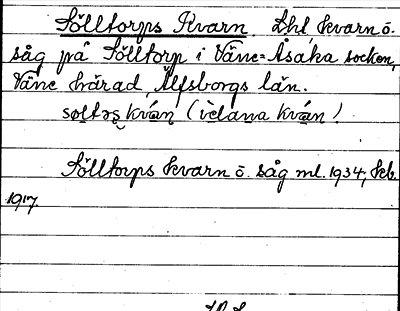 Sölltorps Kvarn Lhl, kvarn o.
såg på Sölltorp i Väne-Åsaka socken,
Väne härad, Älfsborgs län.
søltǝs kván (vèlana kván)
Sölltorps kvarn o. såg ml. 1934, kb.
1917.